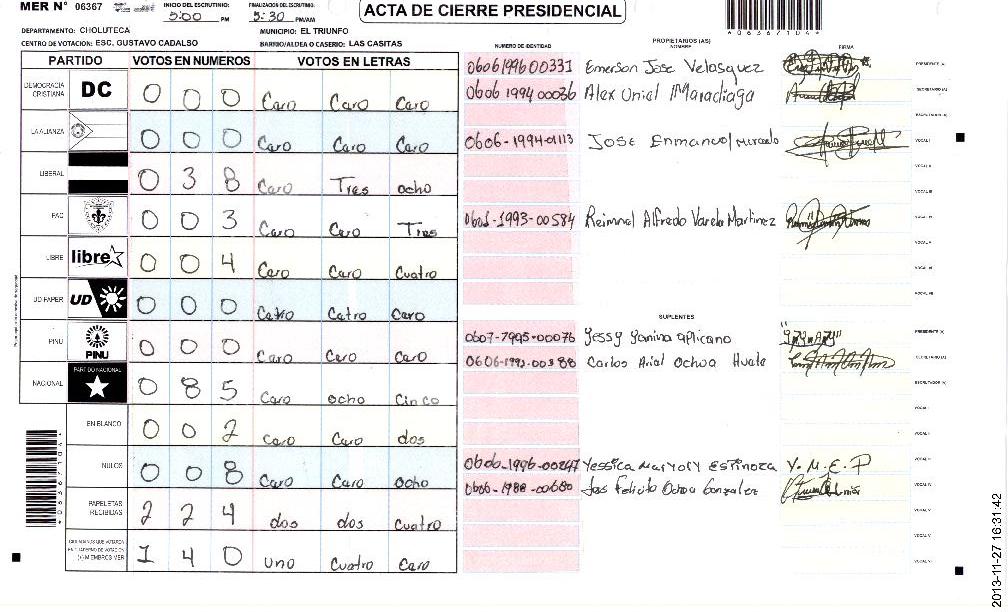 MER N° 06367 INICIO DEL ESCRUTINIO: 5:00 PM FINALIZACION DEL ESCRUTINIO: 5:30 PM/AM ACTA DE CIERRE PRESIDENCIAL
*06367104*
DEPARTAMENTO: CHOLUTECA MUNICIPIO: EL TRIUNFO
CENTRO DE VOTACION: ESC. GUSTAVO CADALSO BARRIO/ALDEA O CASERIO: LAS CASITAS
PARTIDO VOTOS EN NUMEROS VOTOS EN LETRAS
DEMOCRACIA CRISTIANA DC 0 0 0 Caro Caro Caro
LA ALIANZA 0 0 0 Caro Caro Caro
LIBERAL 0 3 8 Caro Tres ocho
PAC 0 0 3 Caro Caro Tres
LIBRE libre 0 0 4 Caro Caro Cuatro
UD-FAPER UD 0 0 0 Catro Catro Caro
PINU PINU 0 0 0 Caro Caro Caro
NACIONAL PARTIDO NACIONAL 0 8 5 Caro ocho Cinco
EN BLANCO 0 0 2 Caro Caro dos
NULOS 0 0 8 Caro Caro Ocho
PAPELETAS RECIBIDAS 2 2 4 dos dos Cuatro
CIUDADANOS QUE VOTARON EN CUADERNO DE VOTACION (+) MIEMBROS MER 1 4 0 Uno Cuatro Caro
*06367104*
NUMERO DE IDENTIDAD PROPIETARIOS (AS) NOMBRE FIRMA
0606199600331 Emerson Jose Velasquez PRESIDENTE (A)
0606 1994 00036 Alex Unial Maradiaga SECRETARIO (A)
ESCRUTADOR (A)
0606-1994-01113 JOSE Enmanuel Mercado VOCAL I
VOCAL II
VOCAL III
0601-1993-00584 Reimnel Alfredo Varela Martinez VOCAL IV
VOCAL V
VOCAL VI
VOCAL VII
SUPLENTES
0607-7995-00076 Yessy Yanina aplicano PRESIDENTE (A)
0606-1993-00388 Carlos Arial Ochoa Huate SECRETARIO (A)
ESCRUTADOR (A)
VOCAL I
VOCAL II
0606-1996-00247 Yessica Maryory Espinoza Y. M. E. P VOCAL III
0606-1988-00680 Jos Felicito Ochoa Gonzalez VOCAL IV
VOCAL V
VOCAL VI
2013-11-27 16:31:42